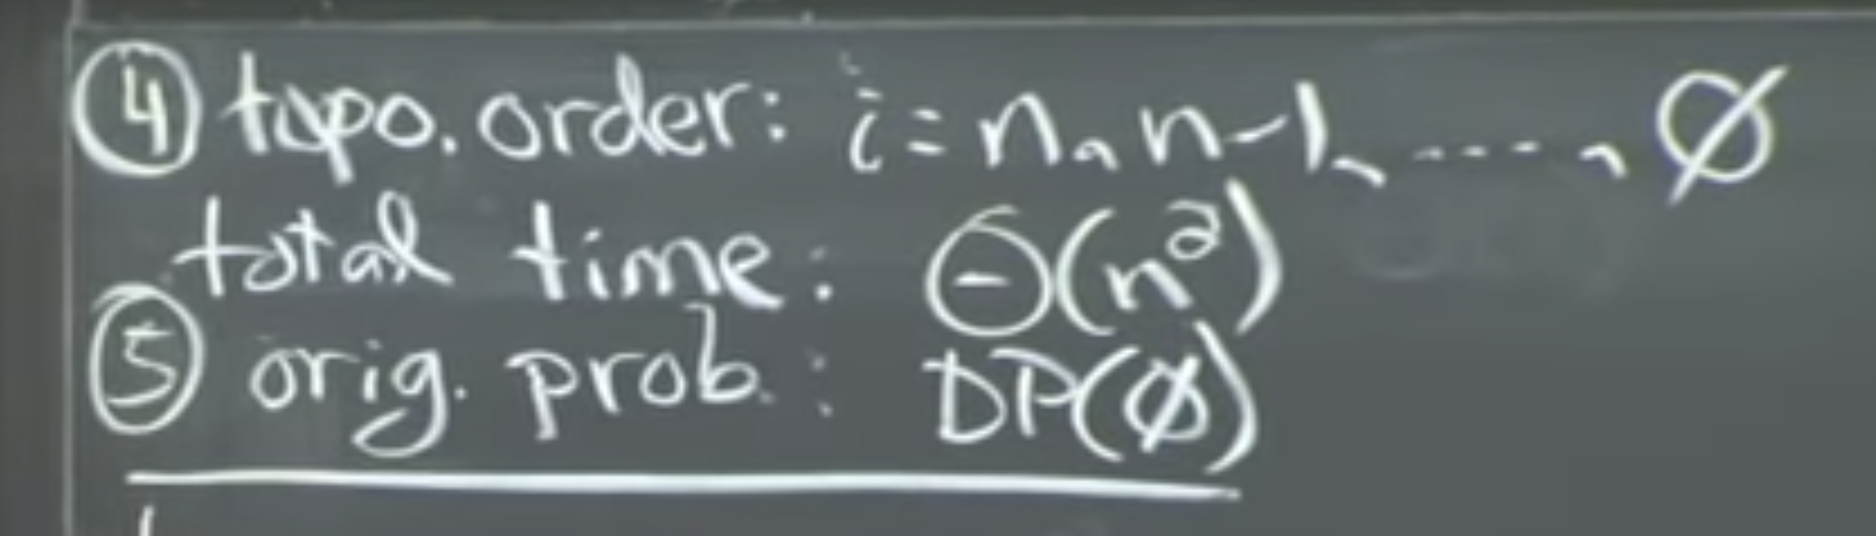 ④ topo. order: i = n, n-1, ...., Ø
total time: Θ(n²)
⑤ orig. prob.: DP(Ø)